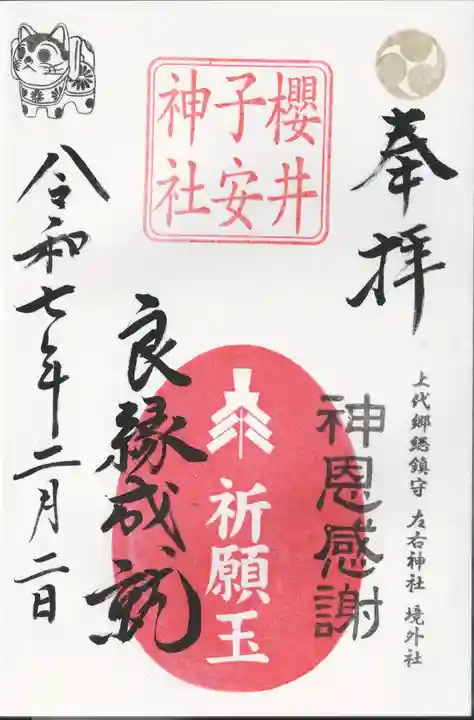 奉拝
上代郷総鎮守 左右神社 境外社
神恩感謝
櫻井
子安
神社
祈願玉
良縁成就
令和七年二月二日